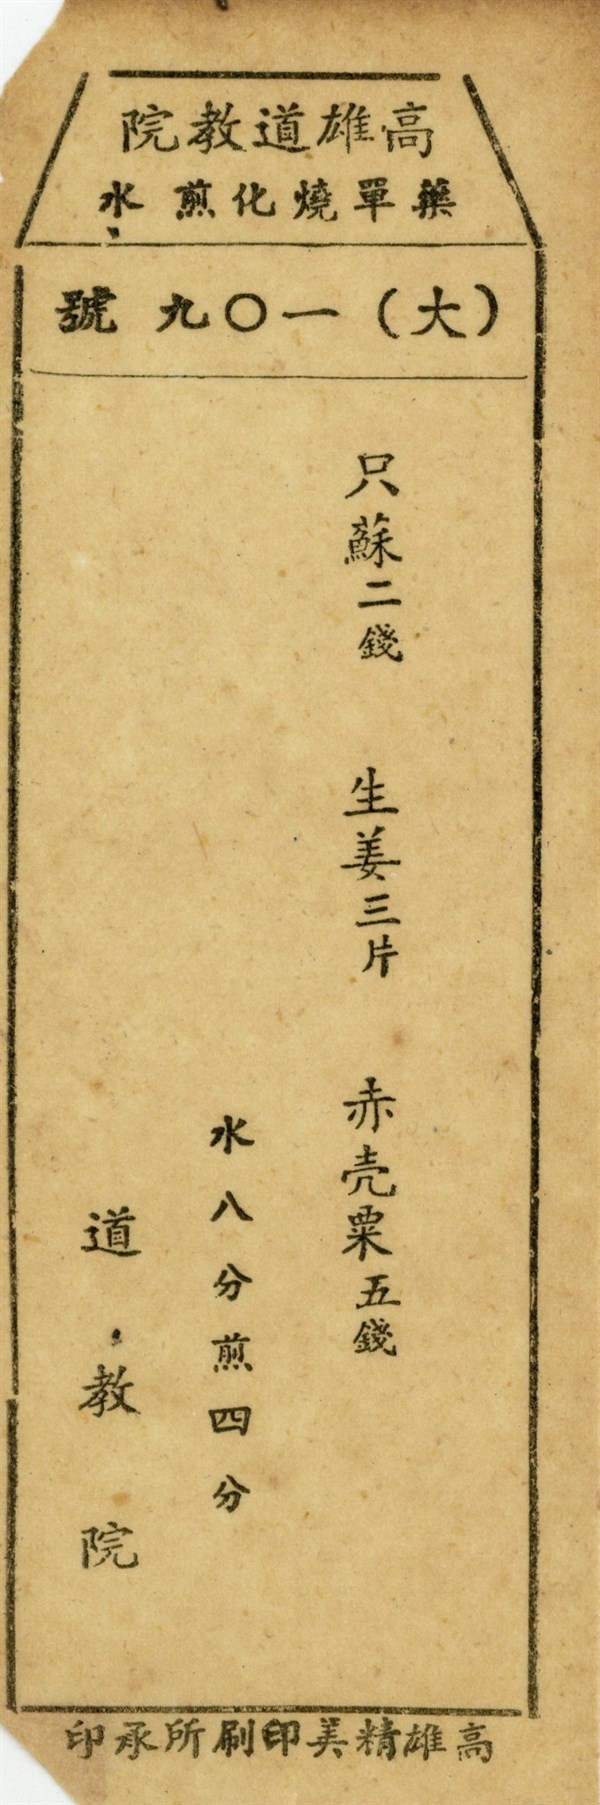 高雄道教院
藥單燒化煎水
（大）一〇九號
只蘇二錢 生姜三片 赤壳粟五錢
水八分煎四分
道教院
高雄精美印刷所承印